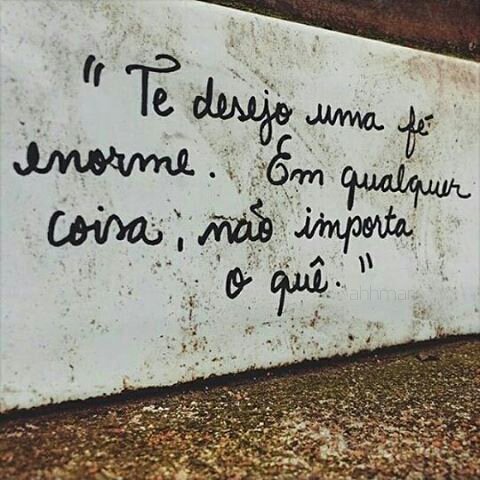 "Te desejo uma fé
enorme. Em qualquer
coisa, não importa
o quê."
ahhmar